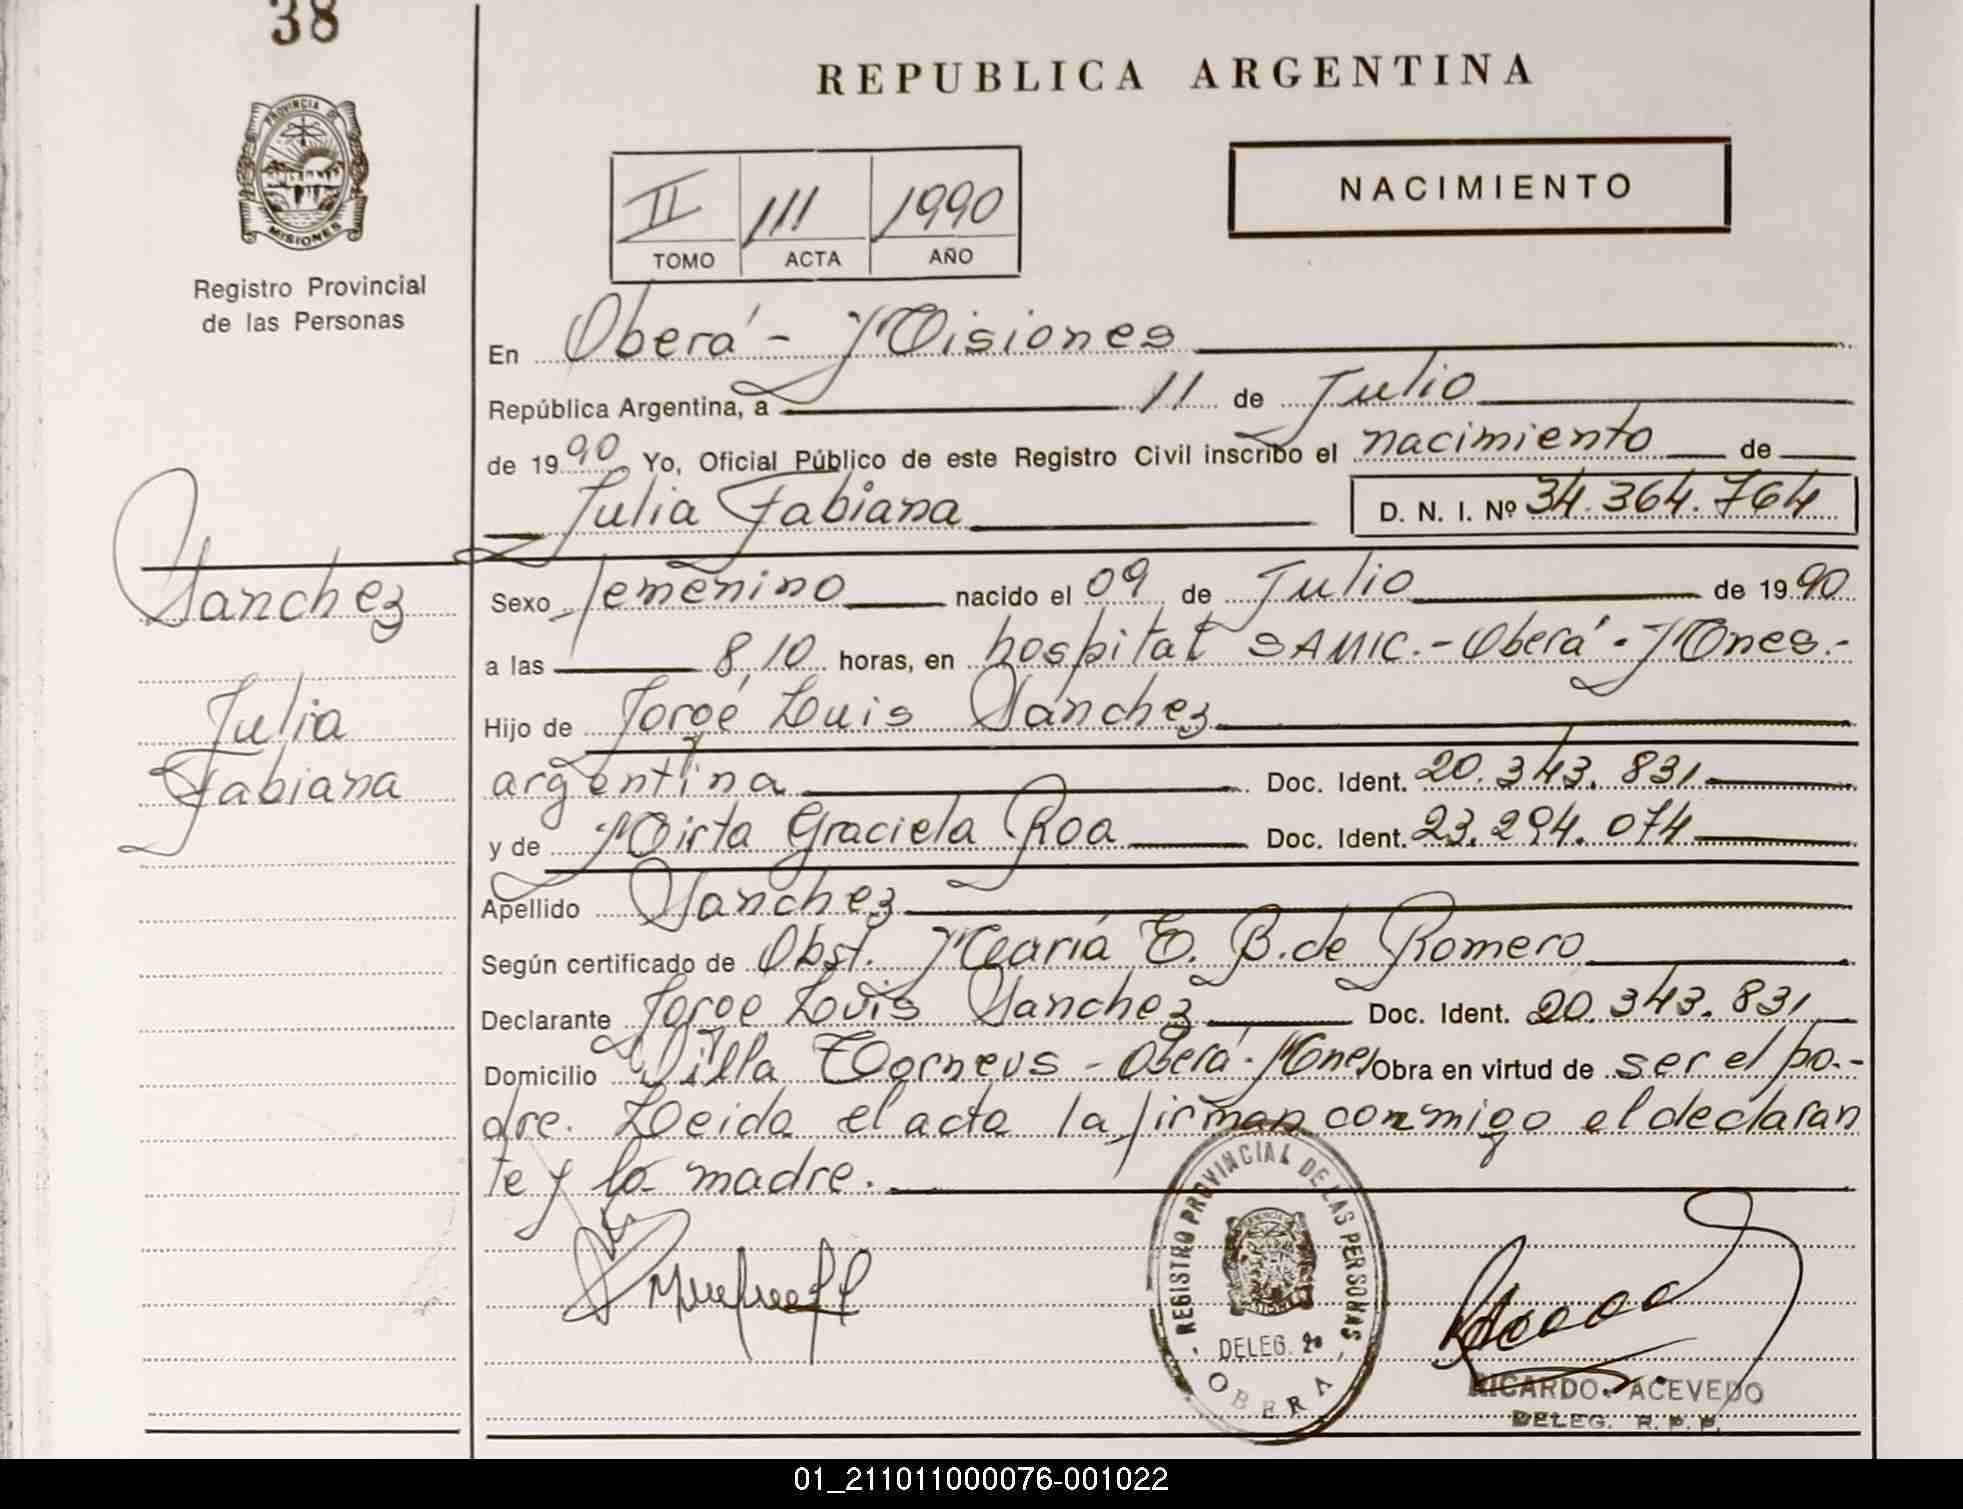 38
PROVINCIA DE
MISIONES
Registro Provincial
de las Personas
REPUBLICA ARGENTINA
NACIMIENTO
II 111 1990
TOMO ACTA AÑO
En Oberá - Misiones
República Argentina, a 11 de Julio
de 1990 Yo, Oficial Público de este Registro Civil inscribo el nacimiento de
Julia Fabiana D. N. I. Nº 34.364.764
Sanchez
Julia
Fabiana
Sexo femenino nacido el 09 de Julio de 1990
a las 8,10 horas, en hospital SAMIC.- Oberá - Mnes.-
Hijo de Jorge Luis Sanchez
argentina Doc. Ident. 20.343.831
y de Mirta Graciela Roa Doc. Ident. 23.294.074
Apellido Sanchez
Según certificado de Obst. María E. B. de Romero
Declarante Jorge Luis Sanchez Doc. Ident. 20.343.831
Domicilio Villa - Oberá - Mnes Obra en virtud de ser el pa.-
dre. Leida el acta la firman conmigo el declaran
te y la madre.
REGISTRO PROVINCIAL DE LAS PERSONAS
DELEG.
OBERA
RICARDO ACEVEDO
DELEG. R. P. P.
01_211011000076-001022